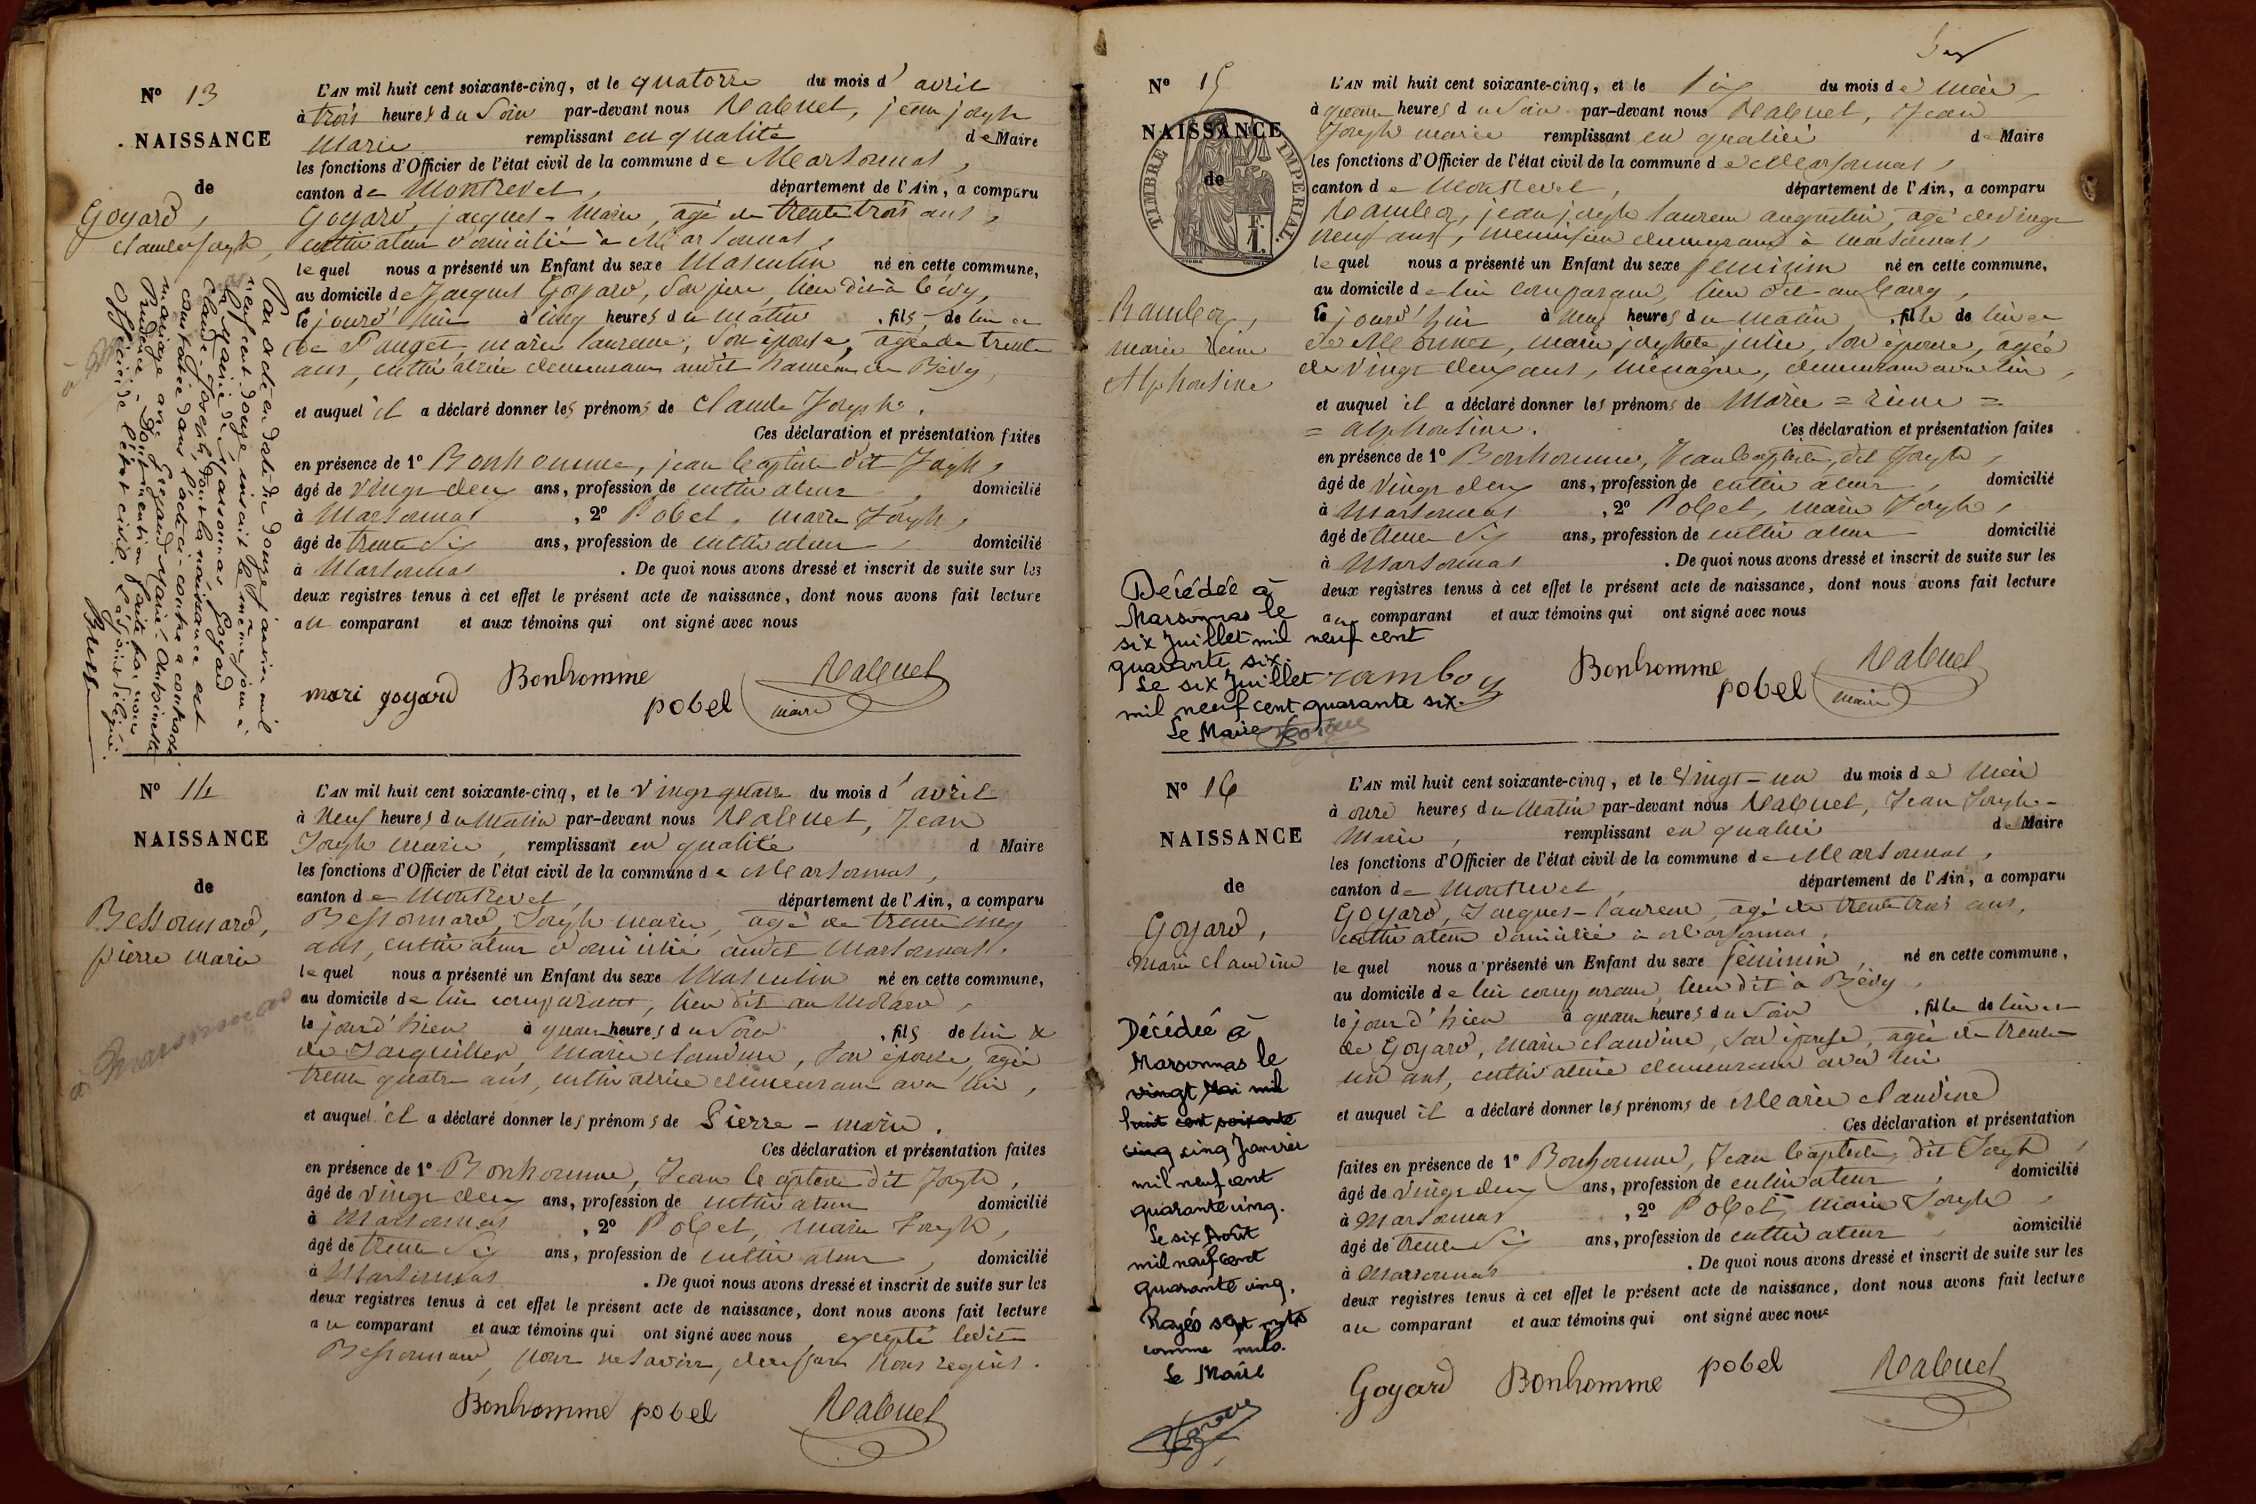 Nº 13
NAISSANCE
de
Goyard,
Claude Joseph,
L'AN mil huit cent soixante-cinq, et le quatorze du mois d'avril
à trois heures du Soir par-devant nous Rabuel, jean joseph
Marie remplissant en qualité de Maire
les fonctions d'Officier de l'état civil de la commune de Marsonnas,
canton de Montrevel, département de l'Ain, a comparu
Goyard, jacques-Marie, agé de trente trois ans,
cultivateur domicilié à Marsonnas,
lequel nous a présenté un Enfant du sexe Masculin né en cette commune,
au domicile de Jacques Goyard, son père, lieu dit à Bévy,
le jourd'hui à cinq heures du matin, fils de lui et
de Panget, marie laurence, son épouse, agée de trente
ans, cultivatrice demeurant audit hameau de Bévy,
et auquel il a déclaré donner les prénoms de Claude Joseph.
Ces déclaration et présentation faites
en présence de 1º Bonhomme, jean baptiste dit Joseph,
âgé de vingt deux ans, profession de cultivateur, domicilié
à Marsonnas, 2º Pobel, marie Joseph,
âgé de trente six ans, profession de cultivateur, domicilié
à Marsonnas. De quoi nous avons dressé et inscrit de suite sur les
deux registres tenus à cet effet le présent acte de naissance, dont nous avons fait lecture
au comparant et aux témoins qui ont signé avec nous
mari goyard Bonhomme pobel Rabuel
maire
Par acte en date du douze janvier mil
neuf cent douze, inscrit le même jour à
la Mairie de Marsonnas, Goyard
Claude Joseph, dont la naissance est
constatée dans l'acte ci-contre a contracté
mariage avec Marie Antoinette
Prudence. Dont mention faite par nous
Officier de l'état civil. L'adjoint délégué.
Nº 14
NAISSANCE
de
Bessonnard,
pierre marie
à Marsonnas
L'AN mil huit cent soixante-cinq, et le Vingt quatre du mois d'avril
à Neuf heures du Matin par-devant nous Rabuel, Jean
Joseph marie, remplissant en qualité d Maire
les fonctions d'Officier de l'état civil de la commune de Marsonnas,
canton de Montrevel, département de l'Ain, a comparu
Bessonnard, Joseph marie, agé de trente cinq
ans, cultivateur domicilié audit Marsonnas,
lequel nous a présenté un Enfant du sexe Masculin né en cette commune,
au domicile de lui comparant, lieu dit au Molard,
le jour d'hier à quatre heures du Soir, fils de lui et
de Jacquillet, Marie claudine, son épouse, agée
trente quatre ans, cultivatrice demeurant avec lui,
et auquel il a déclaré donner les prénoms de Pierre - marie.
Ces déclaration et présentation faites
en présence de 1º Bonhomme, Jean baptiste dit Joseph,
âgé de vingt deux ans, profession de cultivateur domicilié
à Marsonnas, 2º Pobel, marie Joseph,
âgé de trente six ans, profession de cultivateur, domicilié
à Marsonnas. De quoi nous avons dressé et inscrit de suite sur les
deux registres tenus à cet effet le présent acte de naissance, dont nous avons fait lecture
au comparant et aux témoins qui ont signé avec nous excepté ledit
Bessonnard, pour ne savoir, de ce faire requis.
Bonhomme pobel Rabuel
Nº 15
NAISSANCE
de
TIMBRE IMPERIAL
Ramboz,
marie reine
Alphonsine
L'AN mil huit cent soixante-cinq, et le six du mois de Mai,
à quatre heures du Soir par-devant nous Rabuel, Jean
Joseph marie remplissant en qualité de Maire
les fonctions d'Officier de l'état civil de la commune de Marsonnas,
canton de Montrevel, département de l'Ain, a comparu
Ramboz, jean joseph laurent augustin, agé de vingt
neuf ans, menuisier demeurant à marsonnas,
lequel nous a présenté un Enfant du sexe féminin né en cette commune,
au domicile de lui comparant, lieu dit au bourg,
le jourd'hui à neuf heures du matin, fille de lui et
de Monnet, marie josephte julie, son épouse, agée
de vingt deux ans, ménagère, demeurant avec lui,
et auquel il a déclaré donner les prénoms de Marie = reine =
= alphonsine. Ces déclaration et présentation faites
en présence de 1º Bonhomme, Jean baptiste, dit Joseph,
âgé de vingt deux ans, profession de cultivateur, domicilié
à Marsonnas, 2º Pobel, marie Joseph,
âgé de trente six ans, profession de cultivateur domicilié
à Marsonnas. De quoi nous avons dressé et inscrit de suite sur les
deux registres tenus à cet effet le présent acte de naissance, dont nous avons fait lecture
au comparant et aux témoins qui ont signé avec nous
ramboz Bonhomme pobel Rabuel
maire
Décédée à
Marsonnas le
six Juillet mil neuf cent
quarante six.
Le six Juillet
mil neuf cent quarante six.
Le Maire
Nº 16
NAISSANCE
de
Goyard,
Marie claudine
L'AN mil huit cent soixante-cinq, et le Vingt-un du mois de Mai
à onze heures du Matin par-devant nous Rabuel, Jean Joseph-
Marie, remplissant en qualité de Maire
les fonctions d'Officier de l'état civil de la commune de Marsonnas,
canton de Montrevel, département de l'Ain, a comparu
Goyard, Jacques-laurent, agé de trente trois ans,
cultivateur domicilié à Marsonnas,
lequel nous a présenté un Enfant du sexe féminin, né en cette commune,
au domicile de lui comparant lieu dit à Bévy,
le jour d'hier à quatre heures du Soir, fille de lui et
de Goyard, Marie claudine, son épouse, agée de trente
un ans, cultivatrice demeurant avec lui
et auquel il a déclaré donner les prénoms de Marie claudine
Ces déclaration et présentation
faites en présence de 1º Bonhomme, Jean baptiste, dit Joseph,
âgé de vingt deux ans, profession de cultivateur, domicilié
à Marsonnas, 2º Pobel, marie Joseph,
âgé de trente six ans, profession de cultivateur, domicilié
à Marsonnas. De quoi nous avons dressé et inscrit de suite sur les
deux registres tenus à cet effet le présent acte de naissance, dont nous avons fait lecture
au comparant et aux témoins qui ont signé avec nous
Goyard Bonhomme pobel Rabuel
Décédée à
Marsonnas le
vingt Mai mil
huit cent soixante
cinq cinq Janvier
mil neuf cent
quarante cinq.
Le six Août
mil neuf cent
quarante cinq.
Rayés sept mots
comme nuls.
Le Maire